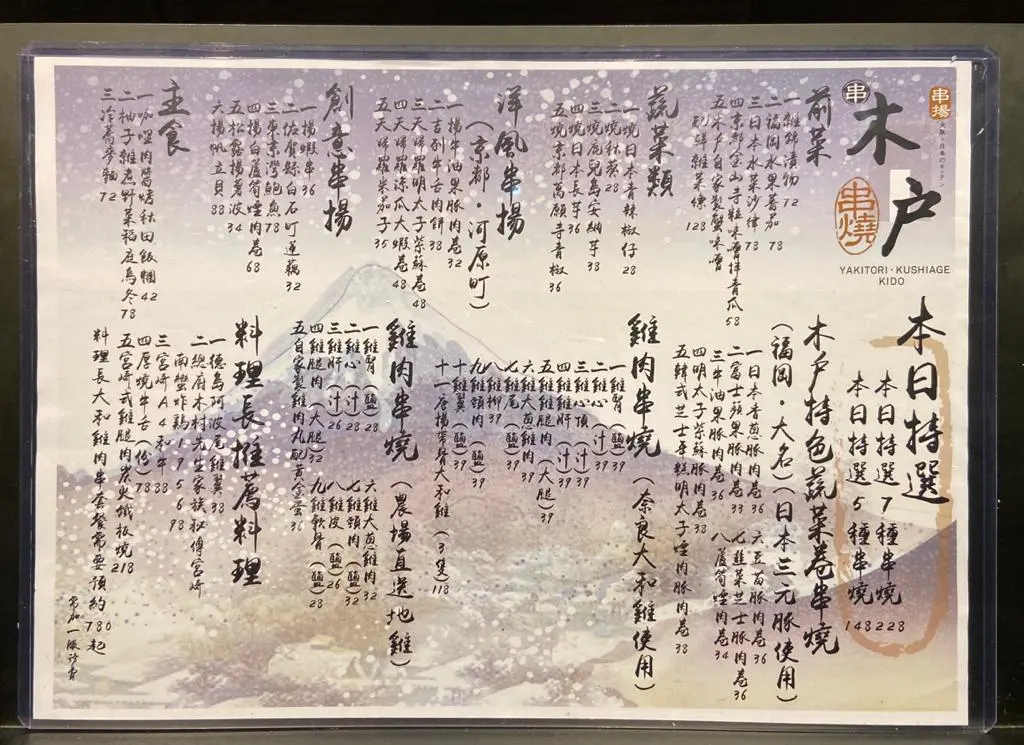 串揚
串
木戶
串燒
YAKITORI・KUSHIAGE
KIDO
前菜
一雜錦漬物 72
二福岡水果蕃茄 78
三日本水菜沙律 78
四京都金山寺粒味噌拌青瓜 58
五木戶自家製蟹味噌
配鮮雜菜條 128
蔬菜類
一燒日本青辣椒仔 28
二燒秋葵 28
三燒鹿兒島安納芋 38
四燒日本長芋 36
五燒京都萬願寺青椒 36
洋風串揚
（京都・河原町）
一揚牛油果豚肉卷 32
二吉列牛舌肉餅 38
三天婦羅明太子紫蘇卷 48
四天婦羅涼瓜大蝦卷 48
五天婦羅米茄子 35
創意串揚
一揚蝦串 36
二佐賀縣白石町蓮藕 32
三東京灣鮑魚 78
四揚白蘆筍煙肉卷 68
五松露揚薯波 34
六揚帆立貝 38
主食
一咖喱肉醬烤秋田飯糰 42
二柚子雞煮野菜稻庭烏冬 78
三冷蕎麥麵 72
本日特選
本日特選7種串燒 228
本日特選5種串燒 148
木戶特色蔬菜卷串燒
（福岡・大名）（日本三元豚使用）
一日本香蔥豚肉卷 36
二富士蘋果豚肉卷 33
三牛油果豚肉卷 36
四明太子紫蘇豚肉卷 38
五韓式芝士年糕明太子煙肉豚肉卷 38
六五苗豚肉卷 36
七韮菜芝士豚肉卷 36
八蘆筍煙肉卷 34
雞肉串燒
（奈良大和雞使用）
一雞腎（鹽）39
二雞心（汁）39
三雞心頂（汁）39
四雞肝（汁）39
五雞腿肉（大腿）39
六雞大蔥雞肉 39
七雞尾（鹽）39
八雞柳 37
九雞頸肉（鹽）39
十雞翼（鹽）39
十一唐揚帶骨大和雞（3隻）118
雞肉串燒
（農場直送地雞）
一雞腎（鹽）28
二雞心（汁）28
三雞肝（汁）26
四雞腿肉（大腿）32
五自家製雞肉丸配黃金蛋 36
六雞大蔥雞肉 32
七雞頸肉（鹽）32
八雞皮（鹽）26
九雞軟骨（鹽）28
料理長推薦料理
一德島阿波尾雞翼 38
二總府木村先生家族秘傳宮崎
南蠻炸鷄 1 9 5 6 98
三宮崎A4和牛 88
四厚燒牛舌（份）78
五宮崎式雞腿肉炭火鐵板燒 218
料理長大和雞肉串套餐需要預約 780起
另加一服務費